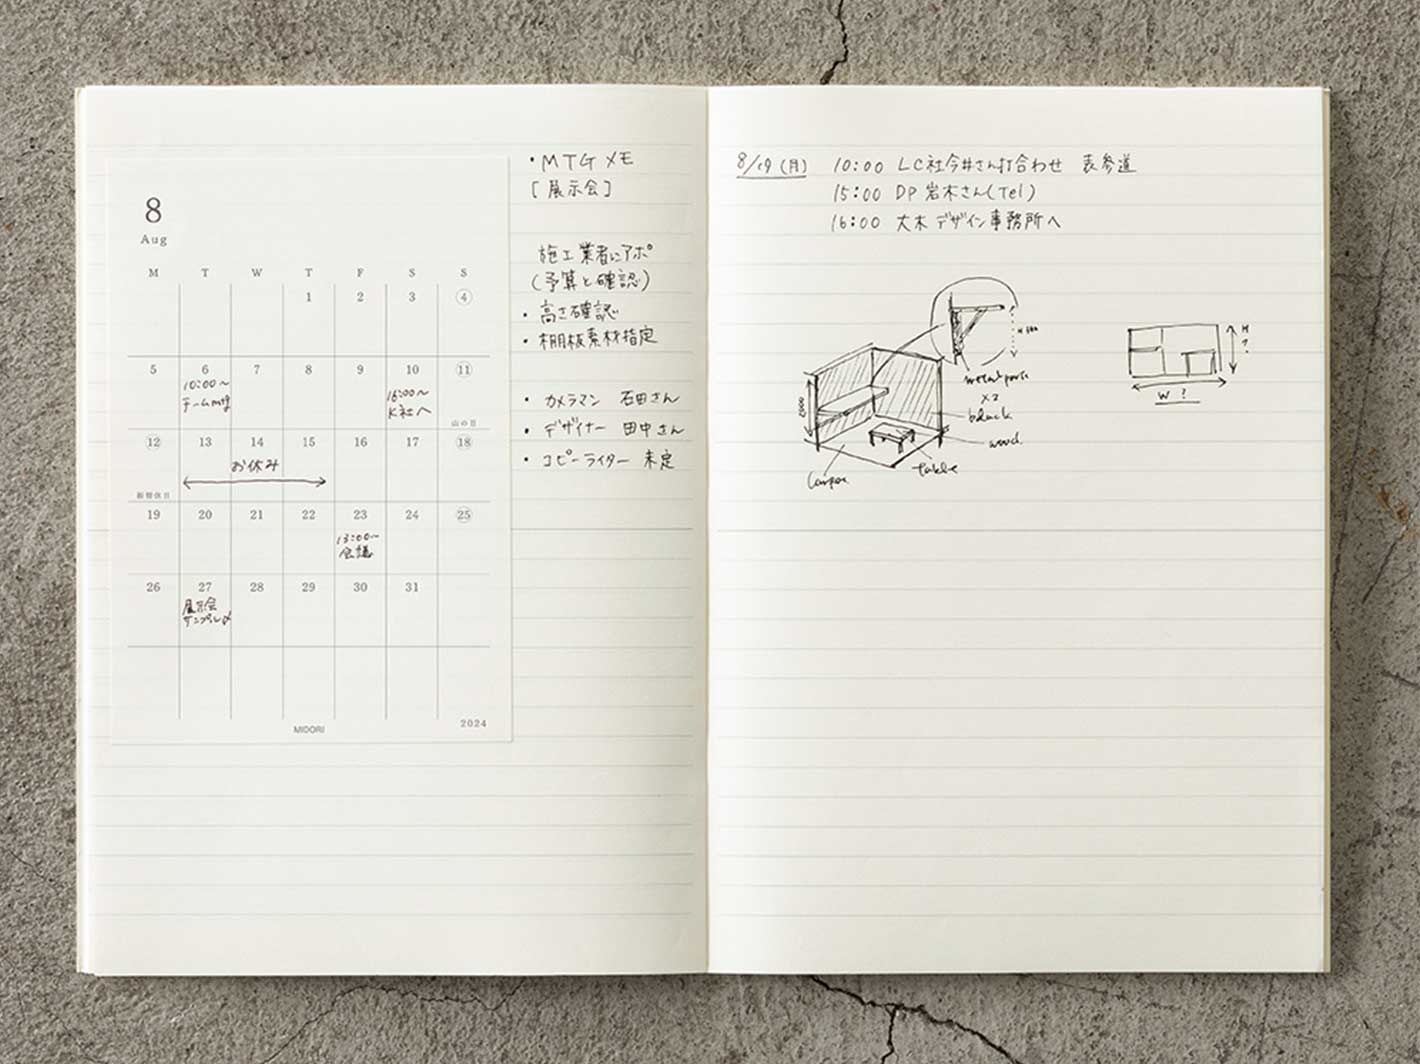 8
Aug
M T W T F S S
1 2 3 4
5 6 7 8 9 10 11
10:00〜
チームmtg
16:00〜
K社へ
山の日
12 13 14 15 16 17 18
お休み
振替休日
19 20 21 22 23 24 25
13:00〜
会議
26 27 28 29 30 31
展示会
サンプル〆
MIDORI
2024
・MTGメモ
[展示会]
施工業者にアポ
(予算と確認)
・高さ確認
・棚板素材指定
・カメラマン 石田さん
・デザイナー 田中さん
・コピーライター 未定
8/19(月) 10:00 LC社今井さん打合わせ 表参道
15:00 DP 岩木さん(Tel)
16:00 大木デザイン事務所へ
metal parts
×2
black
wood
table
H
?
W ?